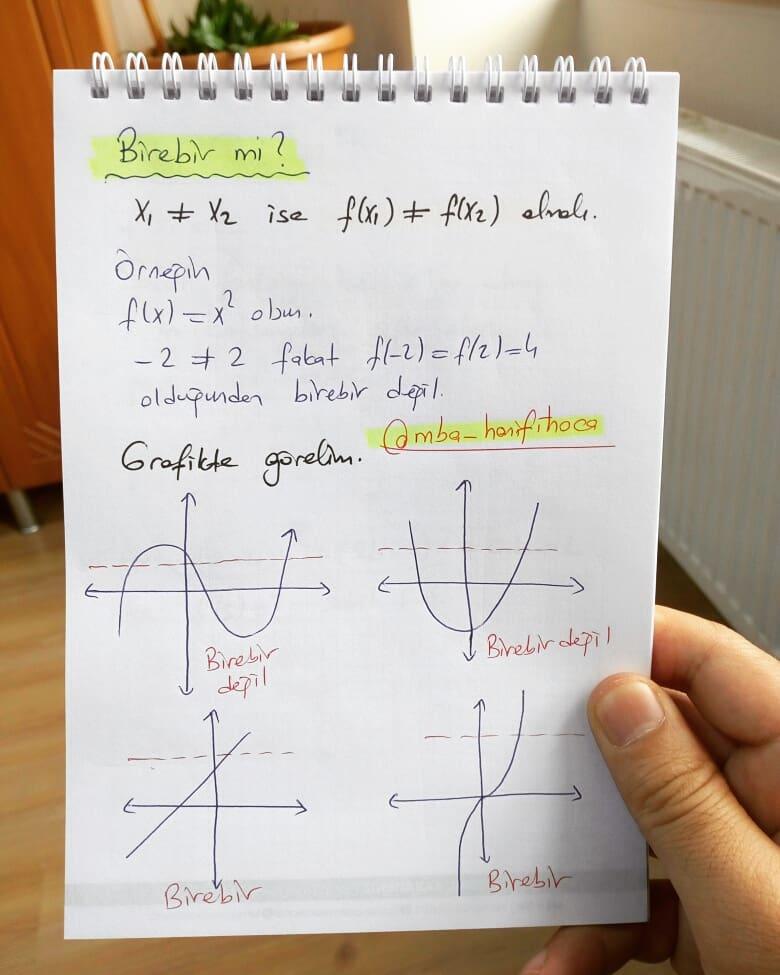 Birebir mi?
x₁ ≠ x₂ ise f(x₁) ≠ f(x₂) olmalı.
Örneğin
f(x) = x² olsun.
-2 ≠ 2 fakat f(-2) = f(2) = 4
olduğundan birebir değil.
@mba_hanifihoca
Grafikte görelim.
Birebir değil
Birebir değil
Birebir
Birebir